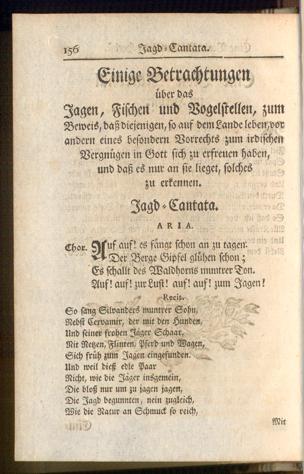 156 Jagd-Cantata.
Einige Betrachtungen
über das
Jagen, Fischen und Vogelstellen, zum
Beweis, daß diejenigen, so auf dem Lande leben, vor
andern eines besondern Vorrechts zum irdischen
Vergnügen in Gott sich zu erfreuen haben,
und daß es nur an sie lieget, solches
zu erkennen.
Jagd-Cantata.
ARIA.
Chor. Auf auf! es fängt schon an zu tagen.
Der Berge Gipfel glühen schon;
Es schallt des Waldhorns muntrer Ton.
Auf! auf! zur Lust! auf! auf! zum Jagen!
Recit.
So sang Silvanders muntrer Sohn,
Nebst der mit den Hunden,
Und seiner frohen Jäger Schaar,
Mit Netzen, Flinten, Pferd und Wagen,
Sich früh zum Jagen eingefunden.
Und weil dieß edle Paar
Nicht, wie die Jäger insgemein,
Die bloß nur um zu jagen jagen,
Die Jagd begunnten, nein zugleich,
Wie die Natur an Schmuck so reich,
Mit